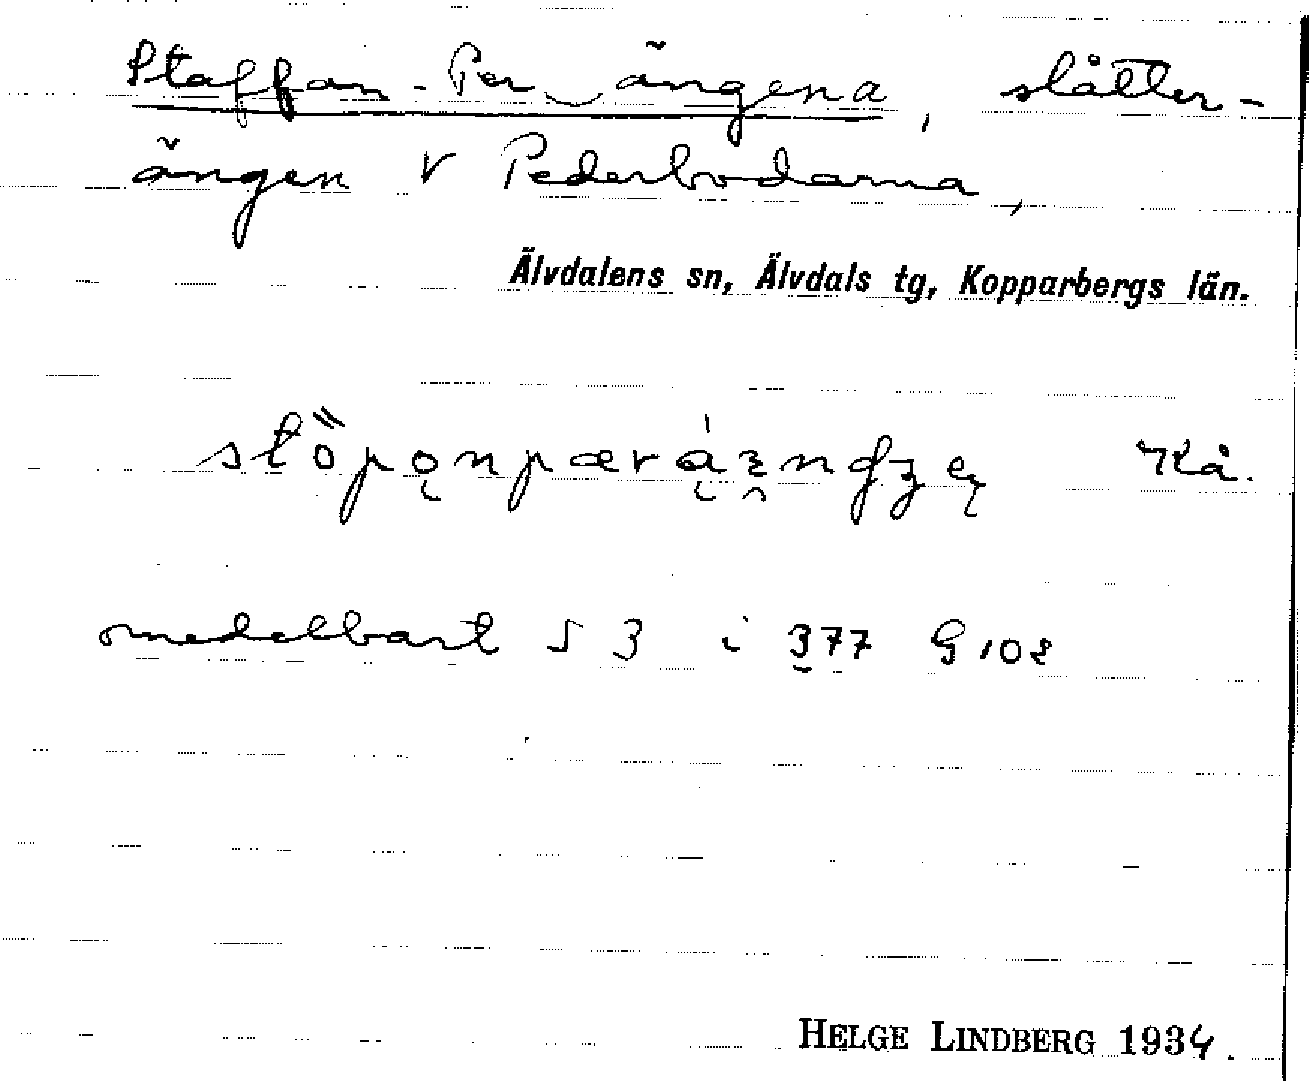 Staffan-Per‿ängena, slåtter-
ängen V Pederbodarna,
Älvdalens sn, Älvdals tg, Kopparbergs län.
Kå.
omedelbart S 3 i 377 G 102
HELGE LINDBERG 1934.